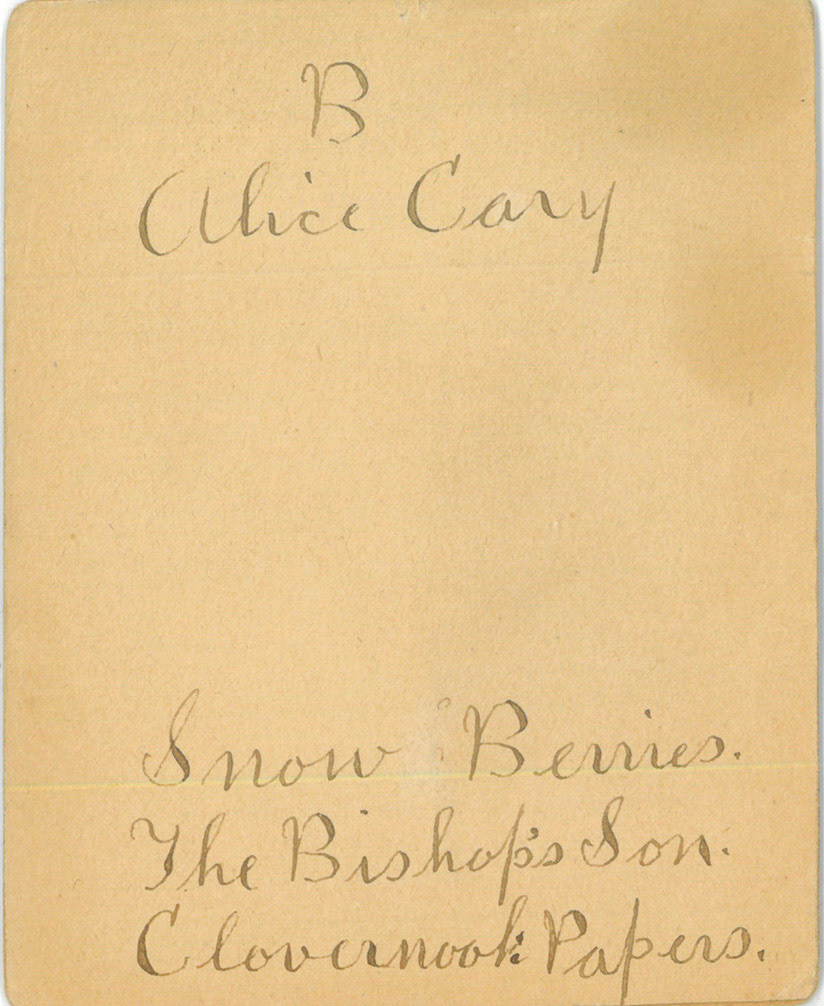 B
Alice Cary
Snow Berries.
The Bishop's Son.
Clovernook Papers.